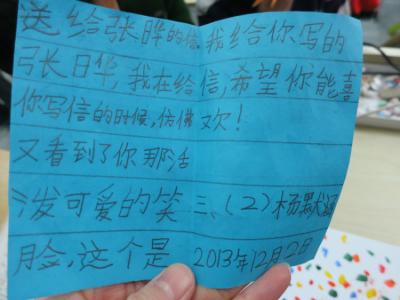 送给张晔的信
张晔,我在给
你写信的时候,仿佛
又看到了你那活
泼可爱的笑
脸,这个是
我给你写的
信,希望你能喜
欢!
三、(2)杨默
2013年12月2日